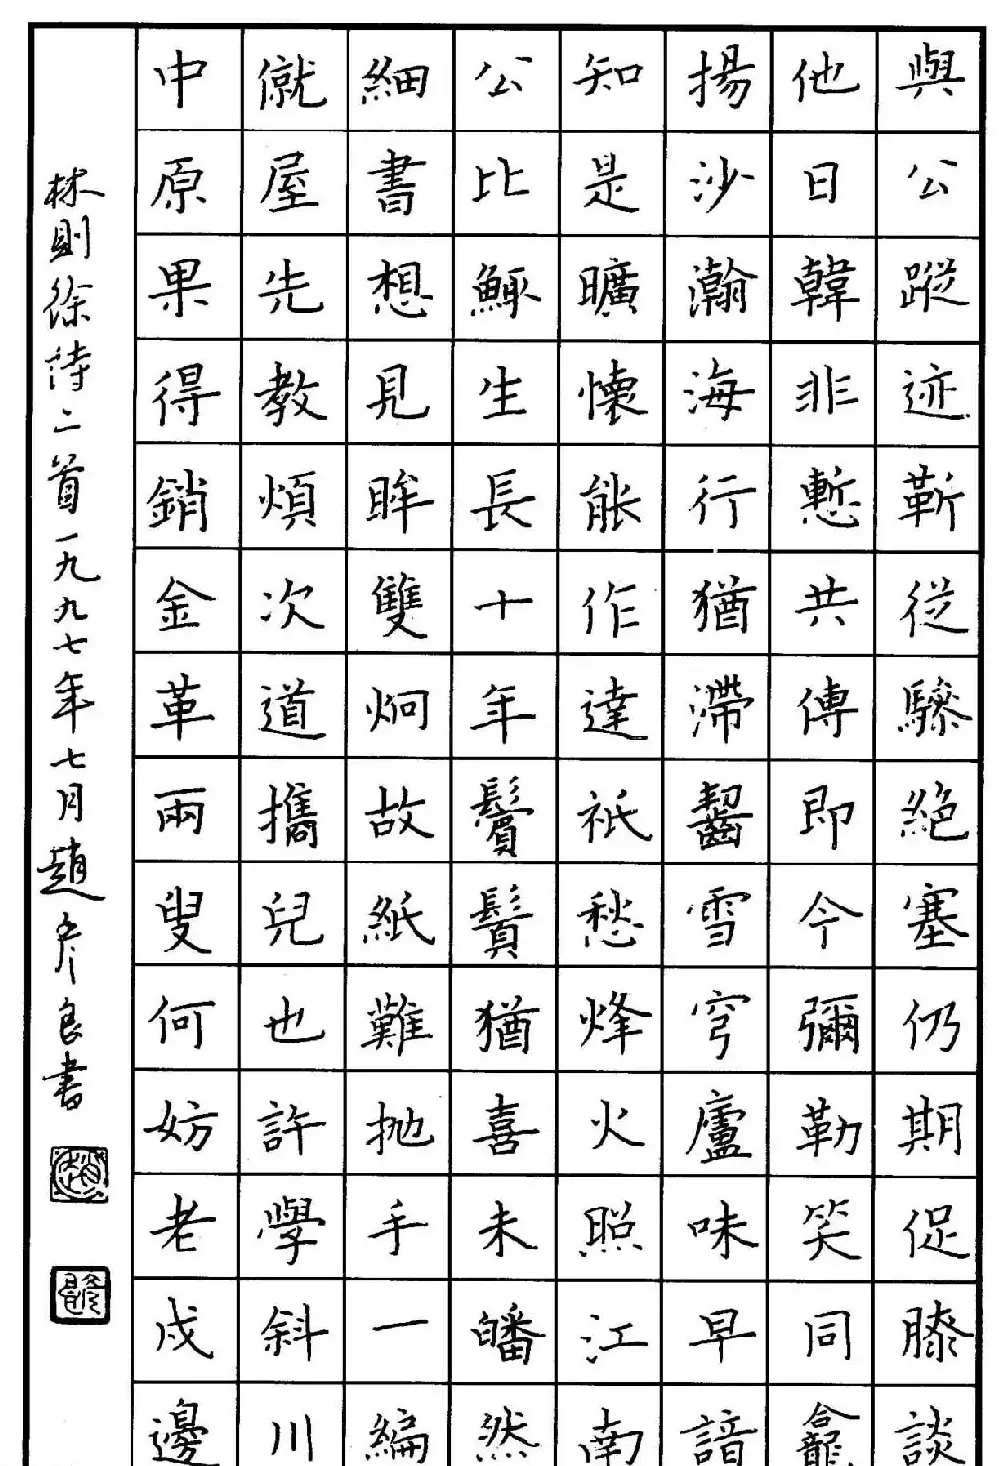 與公蹤迹靳從驂絕塞仍期促膝談
他日韓非慙共傳即今彌勒笑同龕
揚沙瀚海行猶滯齧雪穹廬味早諳
知是曠懷能作達祇愁烽火照江南
公比鯫生長十年鬢鬚猶喜未皤然
細書想見眸雙炯故紙難拋手一編
僦屋先教煩次道攜兒也許學斜川
中原果得銷金革兩叟何妨老戍邊
林則徐詩二首一九九七年七月趙彥良書